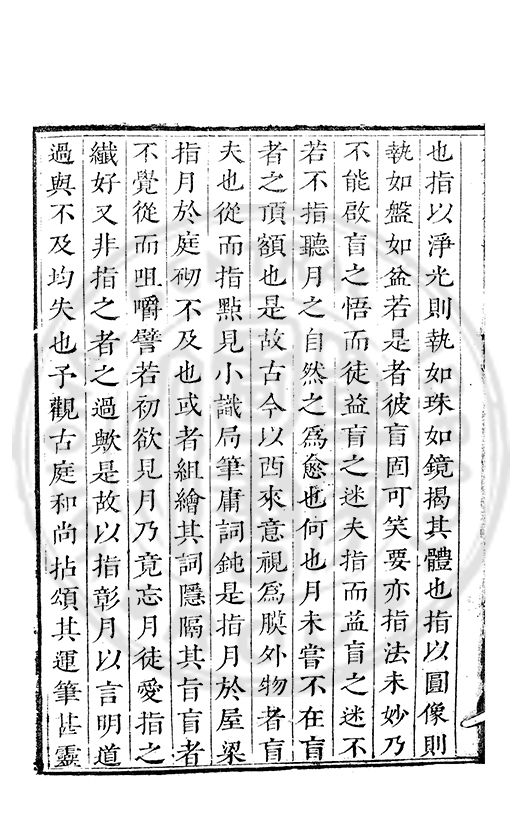 也指以淨光則執如珠如鏡揭其體也指以圓像則
執如盤如盆若是者彼盲固可笑要亦指法未妙乃
不能啟盲之悟而徒益盲之迷夫指而益盲之迷不
若不指聽月之自然之為愈也何也月未嘗不在盲
者之頂額也是故古今以西來意視為膜外物者盲
夫也從而指點見小識局筆庸詞鈍是指月於屋梁
指月於庭砌不及也或者組繪其詞隱隔其旨盲者
不覺從而咀嚼譬若初欲見月乃竟忘月徒愛指之
纖好又非指之者之過歟是故以指彰月以言明道
過與不及均失也予觀古庭和尚拈頌其運筆甚靈